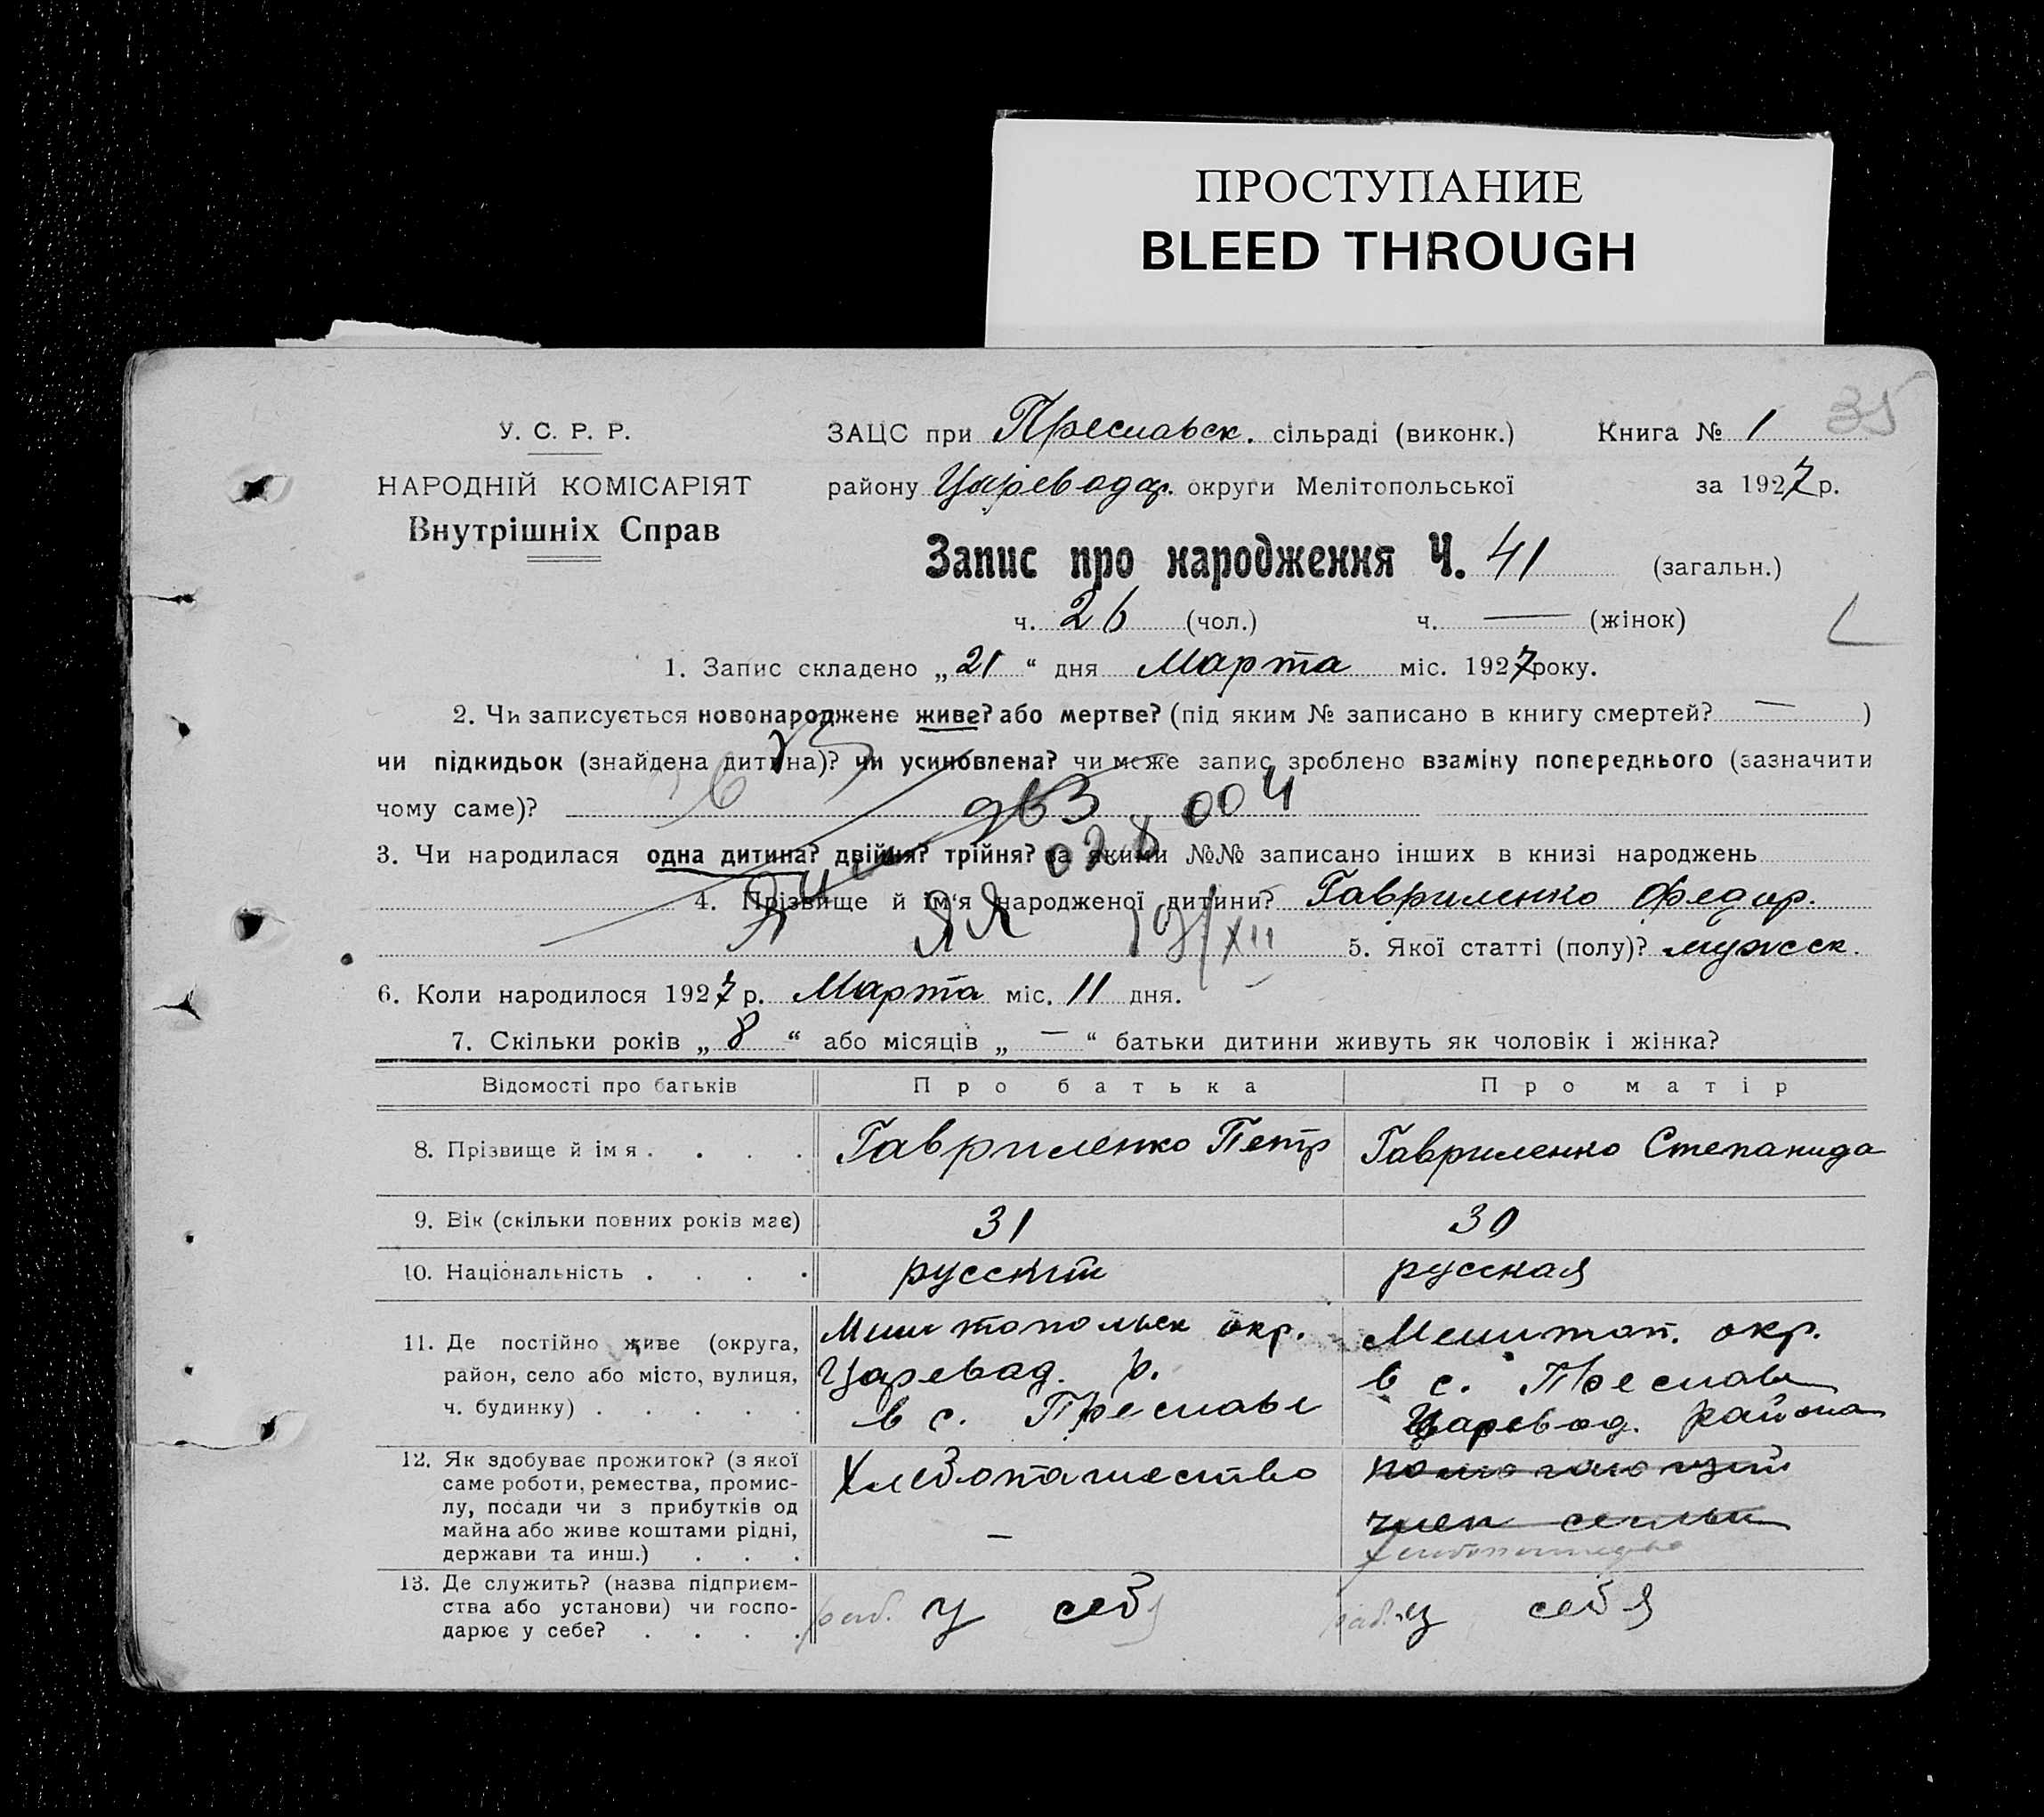 ПРОСТУПАНИЕ
BLEED THROUGH
35
У. С. Р. Р.
НАРОДНІЙ КОМІСАРІЯТ
Внутрішніх Справ
ЗАЦС при Преславск. сільраді (виконк.) Книга № 1
району Цареводар. округи Мелітопольської за 1927 р.
Запис про народження Ч. 41 (загальн.)
ч. 26 (чол.) ч. — (жінок)
1. Запис складено „21“ дня Марта міс. 1927 року.
2. Чи записується новонароджене живе? або мертве? (під яким № записано в книгу смертей? — )
чи підкидьок (знайдена дитина)? чи усиновлена? чи може запис зроблено взаміну попереднього (зазначити
чому саме)?
963 004
028
3. Чи народилася одна дитина? двійня? трійня? за якими №№ записано інших в книзі народжень
4. Прізвище й ім'я народженої дитини? Гавриленко Федир.
5. Якої статті (полу)? мужск.
6. Коли народилося 1927 р. Марта міс. 11 дня.
7. Скільки років „8“ або місяців „—“ батьки дитини живуть як чоловік і жінка?
Відомості про батьків Про батька Про матір
8. Прізвище й імя . . . . Гавриленко Петр Гавриленко Степанида
9. Вік (скільки повних років має) 31 30
10. Національність . . . . русский русская
11. Де постійно живе (округа,
район, село або місто, вулиця,
ч. будинку) . . . . .
Мелитопольск окр.
Царевод. р.
в с. Преславе
Мелитоп. окр.
в с. Преслав
Царевод. района
12. Як здобуває прожиток? (з якої
саме роботи, ремества, промис-
лу, посади чи з прибутків од
майна або живе коштами рідні,
держави та инш.) . . .
Хлебопашество
—
помогающий
член семьи
хлебопашество
13. Де служить? (назва підприєм-
ства або установи) чи госпо-
дарює у себе? . . . .
раб. у себя
раб. у себя